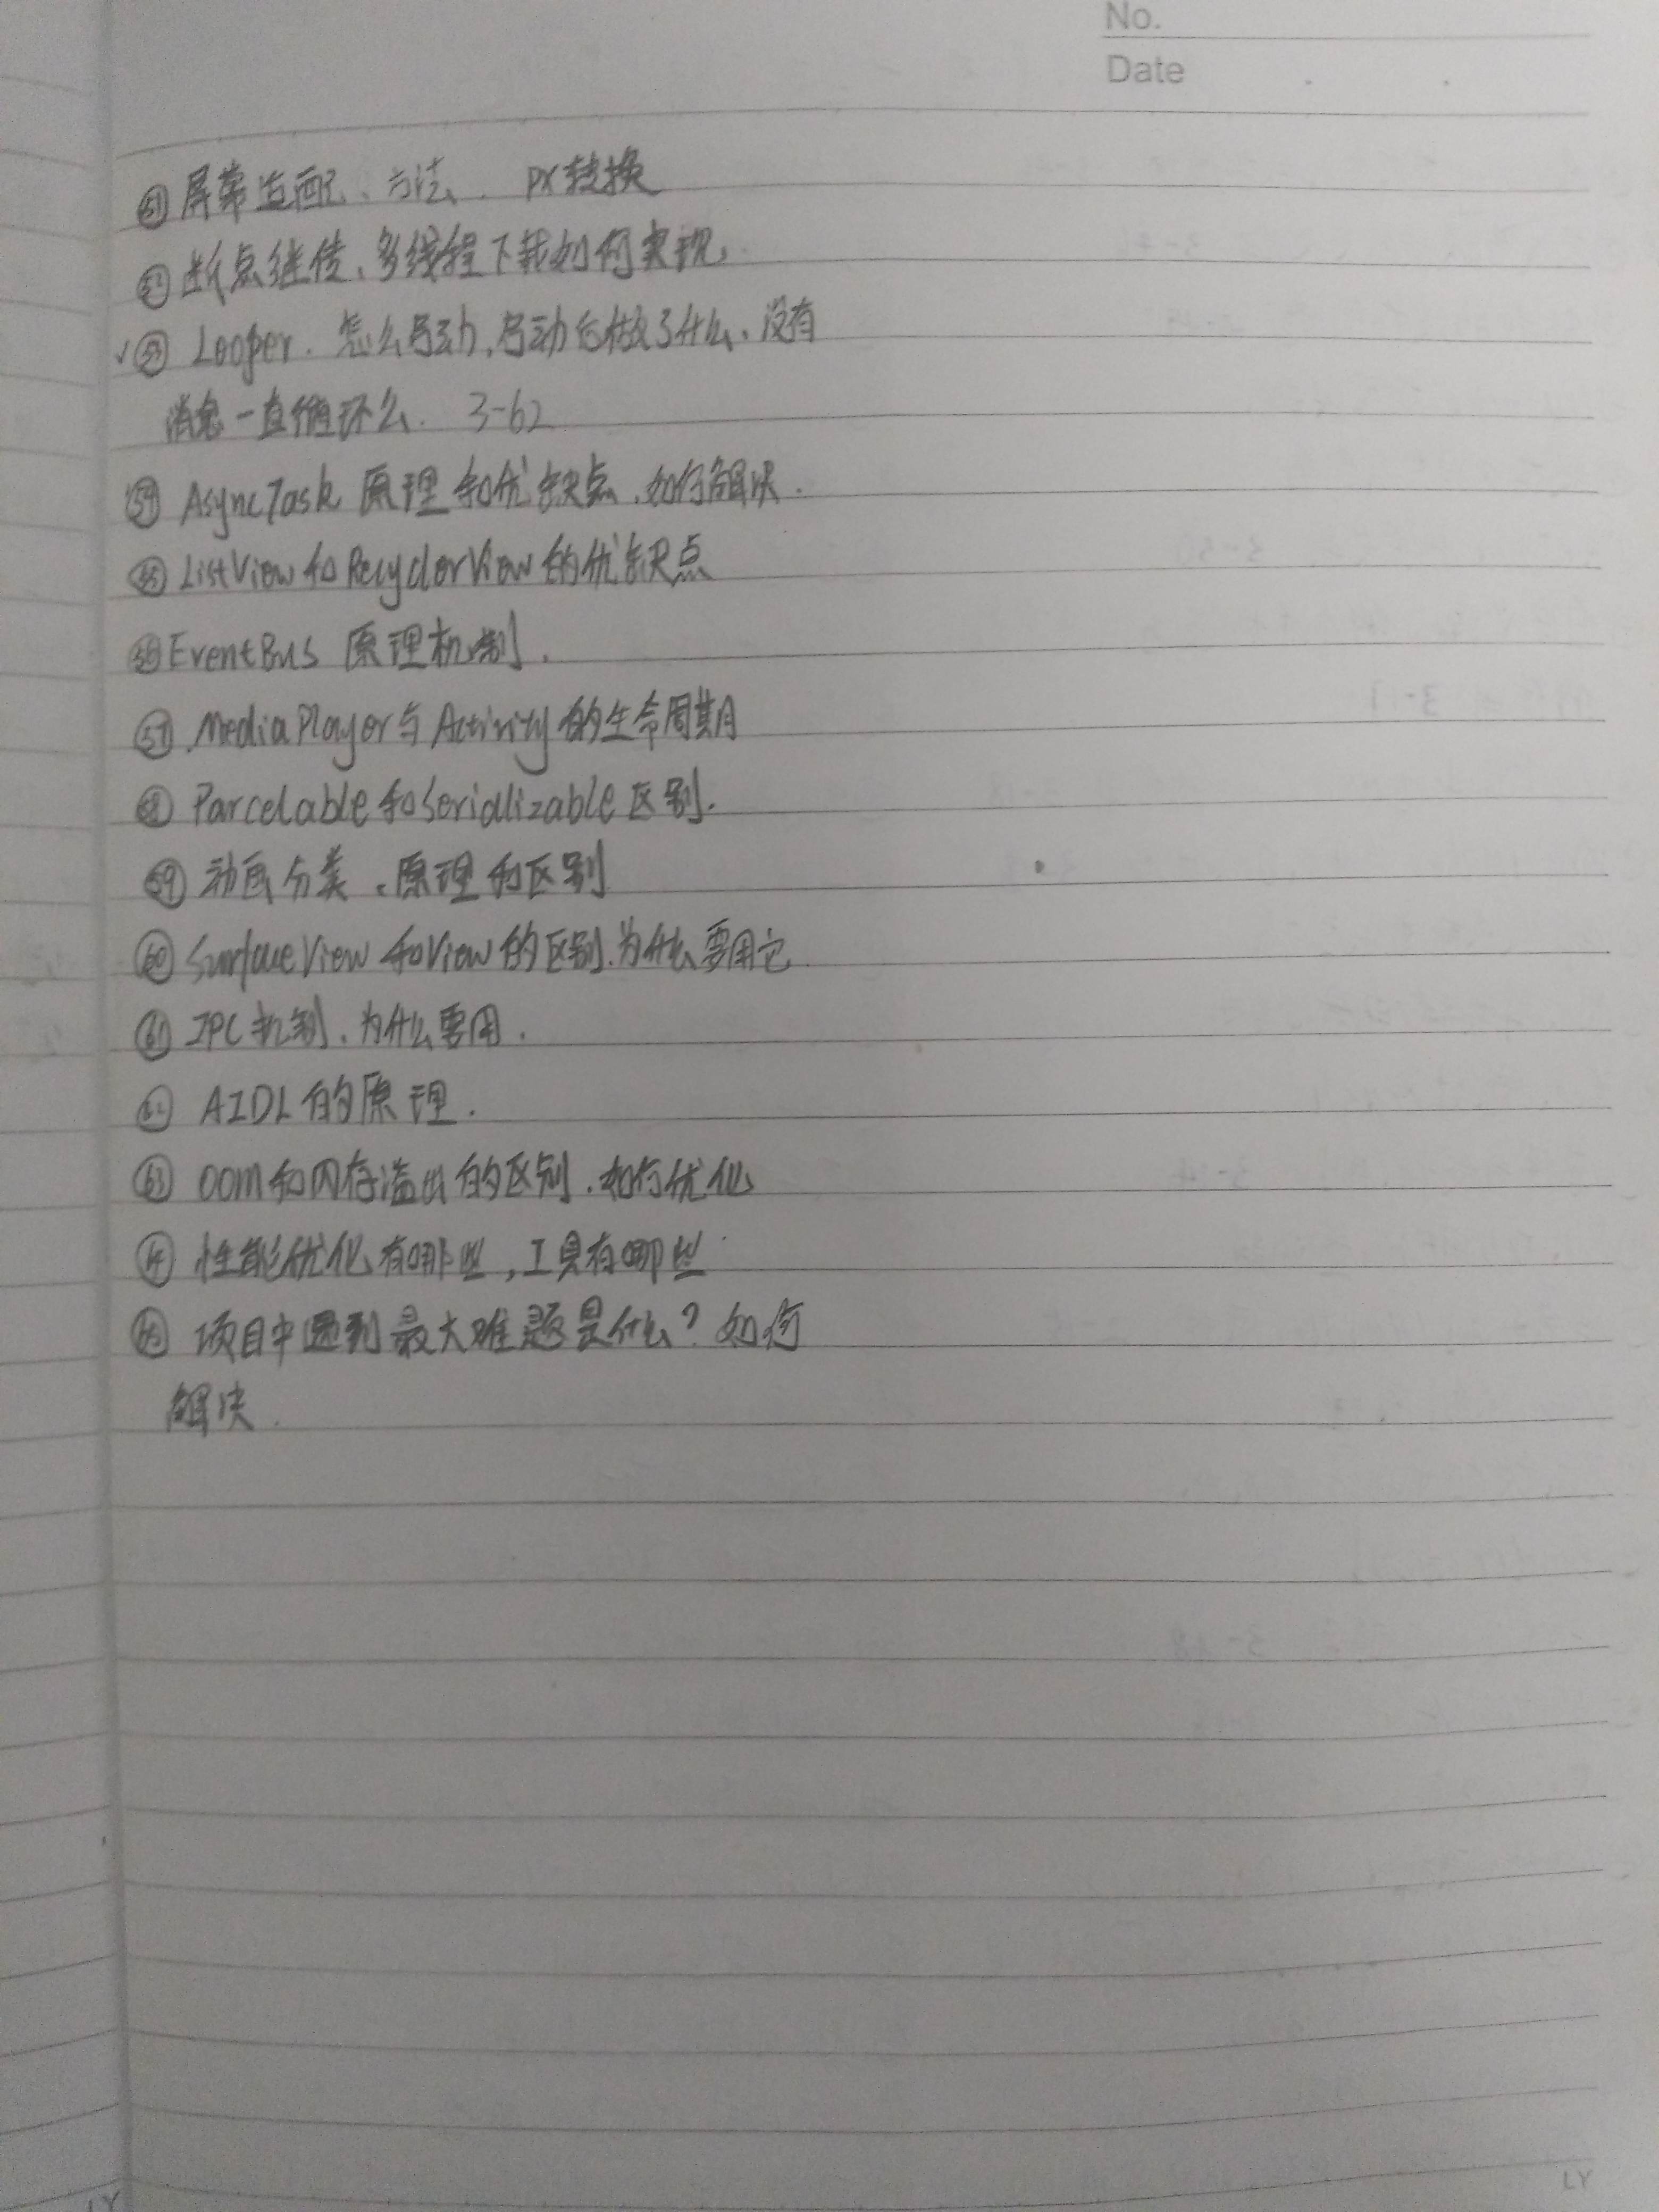 No.
Date
㉛ 屏幕适配、方法、px转换
㊾ 断点继传、多线程下载如何实现,
✓㊼ Looper. 怎么启动,启动后做了什么、没有
消息一直循环么. 3-62
54 AsyncTask 原理和优缺点、如何解决.
55 ListView和RecyclerView的优缺点
56 EventBus 原理机制.
57 MediaPlayer与Activity的生命周期
58 Parcelable和Serializable区别.
59 动画分类、原理和区别
60 SurfaceView和View的区别.为什么要用它
61 IPC机制、为什么要用.
62 AIDL的原理.
63 OOM和内存溢出的区别.如何优化
64 性能优化有哪些,工具有哪些
65 项目中遇到最大难题是什么?如何
解决.
LY
LY